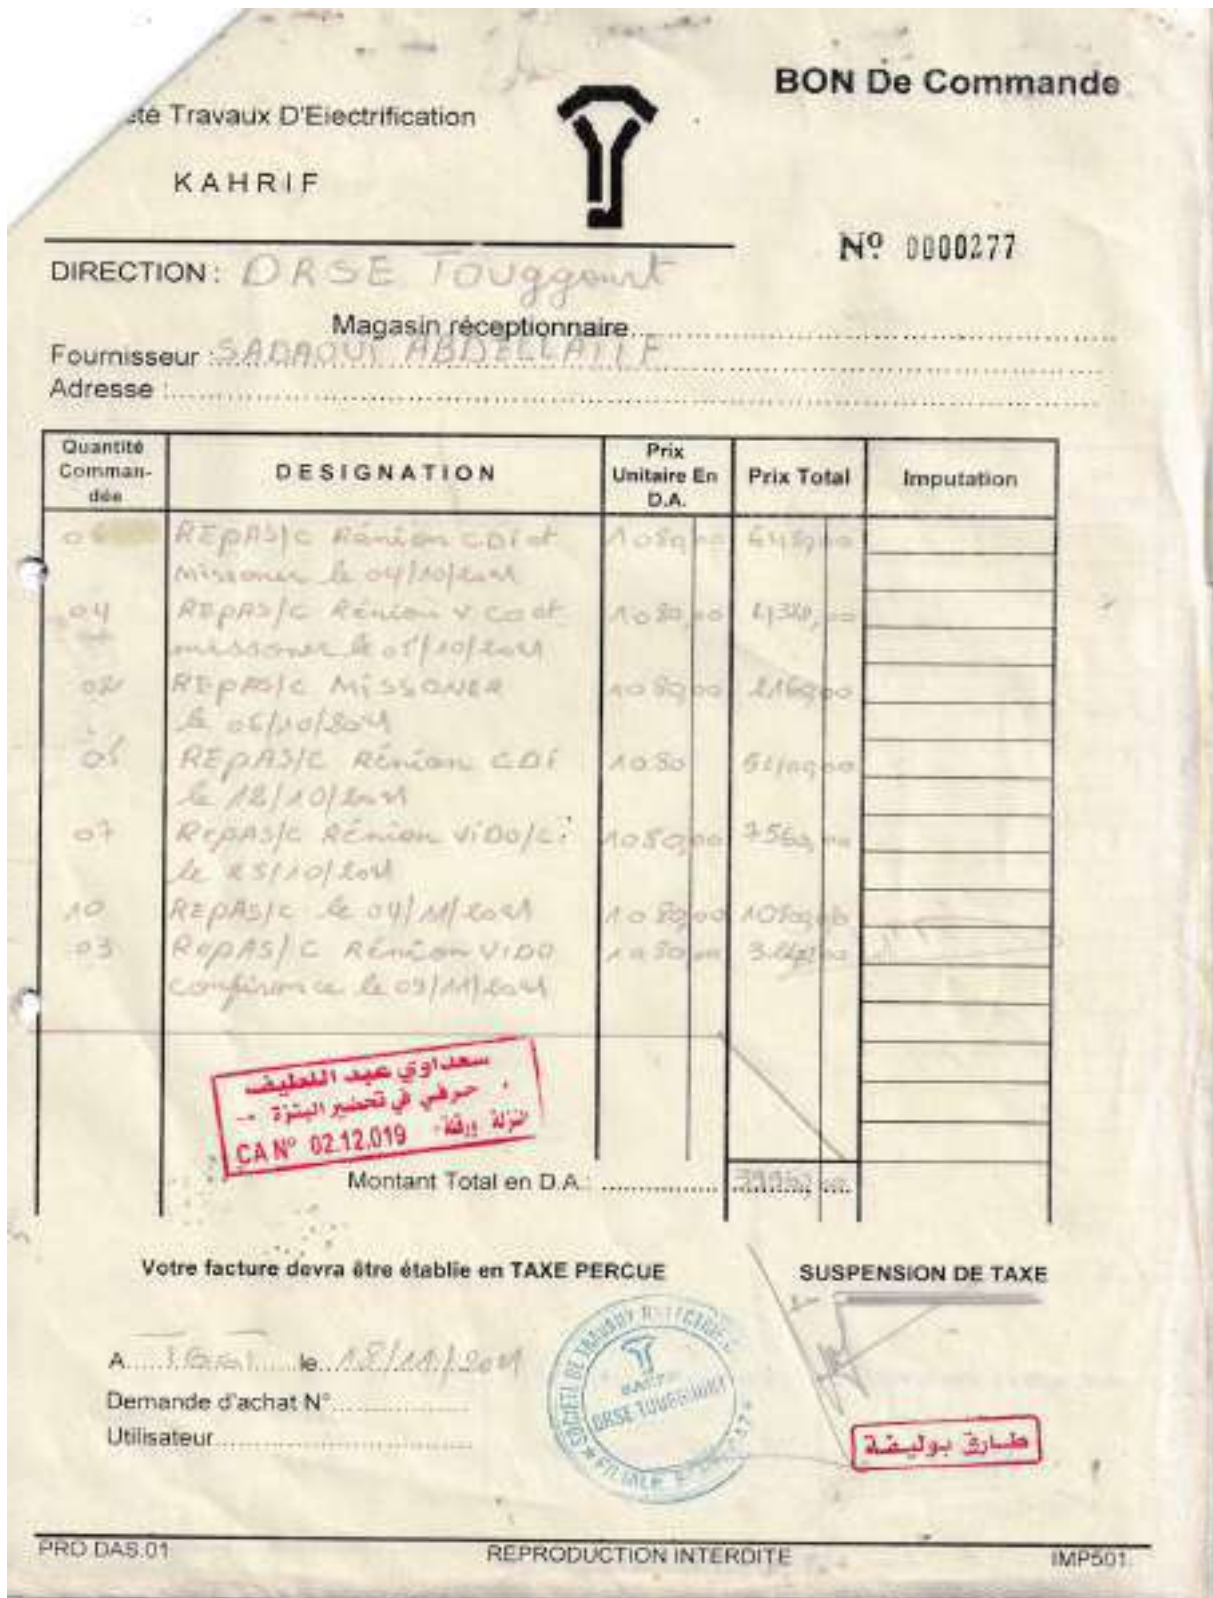 BON De Commande
été Travaux D'Electrification
KAHRIF
Nº 0000277
DIRECTION : DRSE Touggourt
Magasin réceptionnaire
Fournisseur : SADAOUI ABDELLATIF
Adresse :
Quantité Comman-dée DESIGNATION Prix Unitaire En D.A. Prix Total Imputation
06 REPAS/C Rénion CDI et 1080,00 6480,00
missoner le 04/10/2021
04 REPAS/C Rénion V.CO et 1080,00 4320,00
missoner le 05/10/2021
02 REPAS/C MiSSONER 1080,00 2160,00
le 06/10/2021
05 REPAS/C Rénion CDI 1080 5400,00
le 12/10/2021
07 REPAS/C Rénion ViDO/C: 1080,00 7560,00
le 25/10/2021
10 REPAS/C le 04/11/2021 1080,00 10800,00
03 REPAS/C Rénion VIDO 1080,00 3240,00
confironce le 09/11/2021
سعداوي عبد اللطيف
حرفي في تحضير البيتزة
النزلة ورقلة
CA N° 02.12.019
Montant Total en D.A.: 39960,00
Votre facture devra être établie en TAXE PERCUE
SUSPENSION DE TAXE
A TGGT le 18/11/2021
Demande d'achat N°
Utilisateur
SOCIETE DE TRAVAUX D'ELECTRIF
KAHRIF
DRSE TOUGGOURT
FILIALE
طارق بوليفة
PRO DAS.01
REPRODUCTION INTERDITE
IMP501.